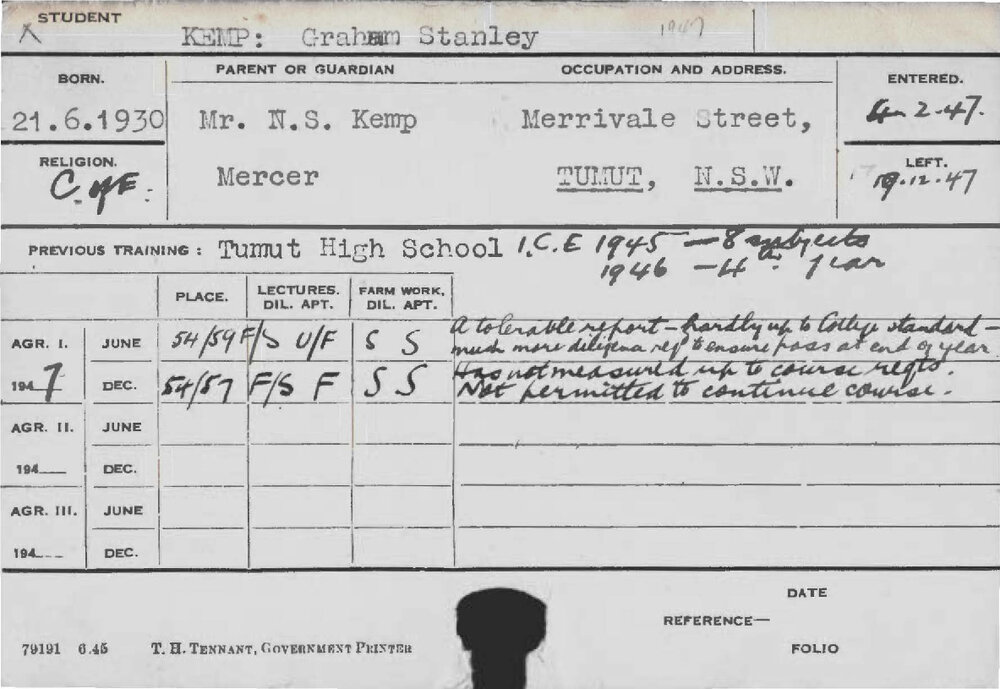 STUDENT
KEMP: Graham Stanley 1947
BORN. PARENT OR GUARDIAN OCCUPATION AND ADDRESS. ENTERED.
21.6.1930 Mr. N.S. Kemp Merrivale Street, 4.2.47.
RELIGION. LEFT.
C of E. Mercer TUMUT, N.S.W. 19.12.47
PREVIOUS TRAINING : Tumut High School I.C.E 1945 — 8 subjects
1946 — 4th year
PLACE. LECTURES. DIL. APT. FARM WORK, DIL. APT.
AGR. I. JUNE 54/59 F/S U/F S S A tolerable report — hardly up to College standard —
much more diligence reqd to ensure pass at end of year.
1947 DEC. 54/57 F/S F S S Has not measured up to course reqts.
Not permitted to continue course.
AGR. II. JUNE
194 DEC.
AGR. III. JUNE
194 DEC.
DATE
REFERENCE—
79191 6.45 T. H. TENNANT, GOVERNMENT PRINTER FOLIO